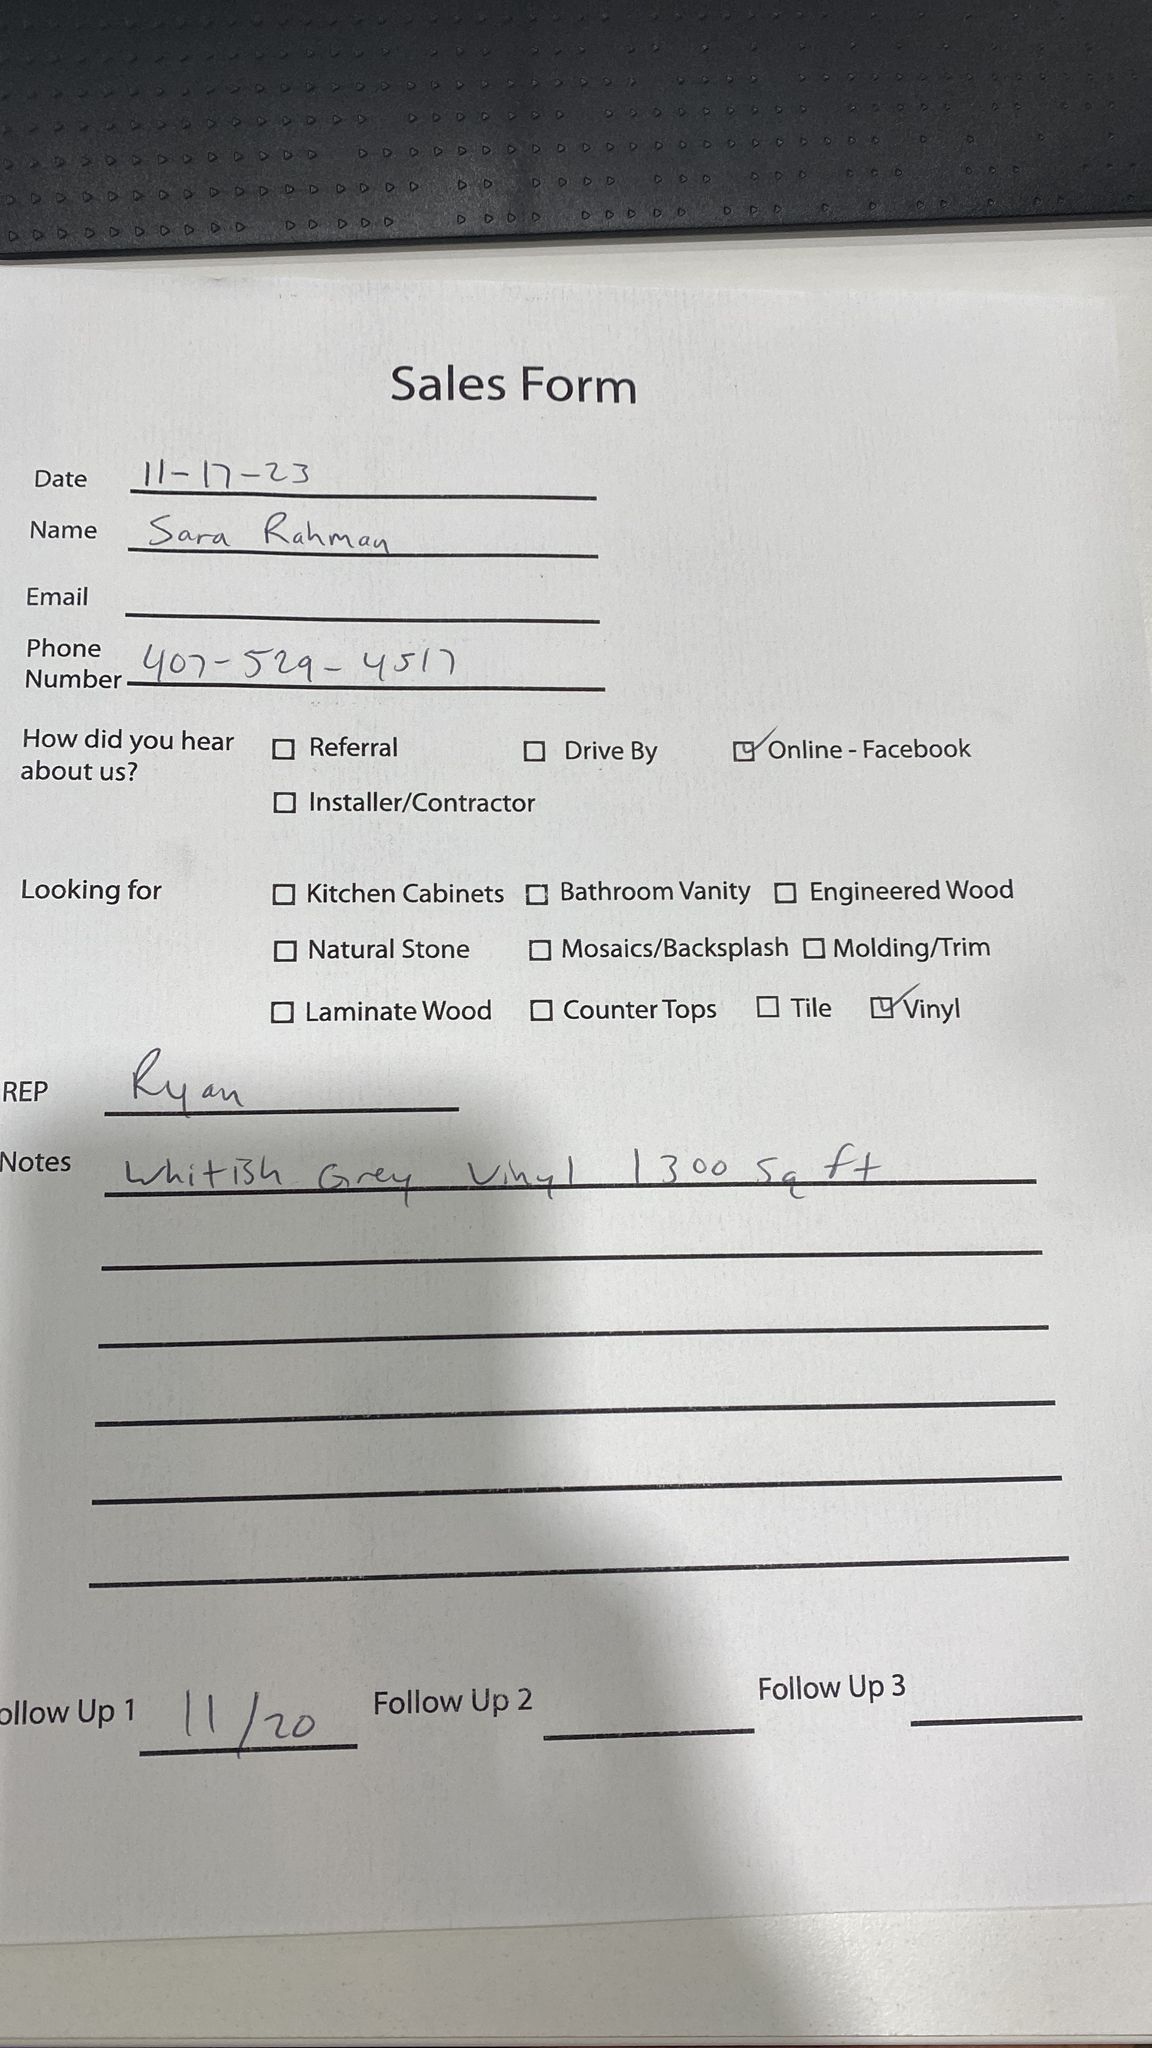 Sales Form
Date 11-17-23
Name Sara Rahman
Email
Phone Number 407-529-4517
How did you hear about us? ☐ Referral ☐ Drive By ☑ Online - Facebook
☐ Installer/Contractor
Looking for ☐ Kitchen Cabinets ☐ Bathroom Vanity ☐ Engineered Wood
☐ Natural Stone ☐ Mosaics/Backsplash ☐ Molding/Trim
☐ Laminate Wood ☐ Counter Tops ☐ Tile ☑ Vinyl
REP Ryan
Notes Whitish Grey Vinyl 1300 sq ft
ollow Up 1 11/20 Follow Up 2 Follow Up 3